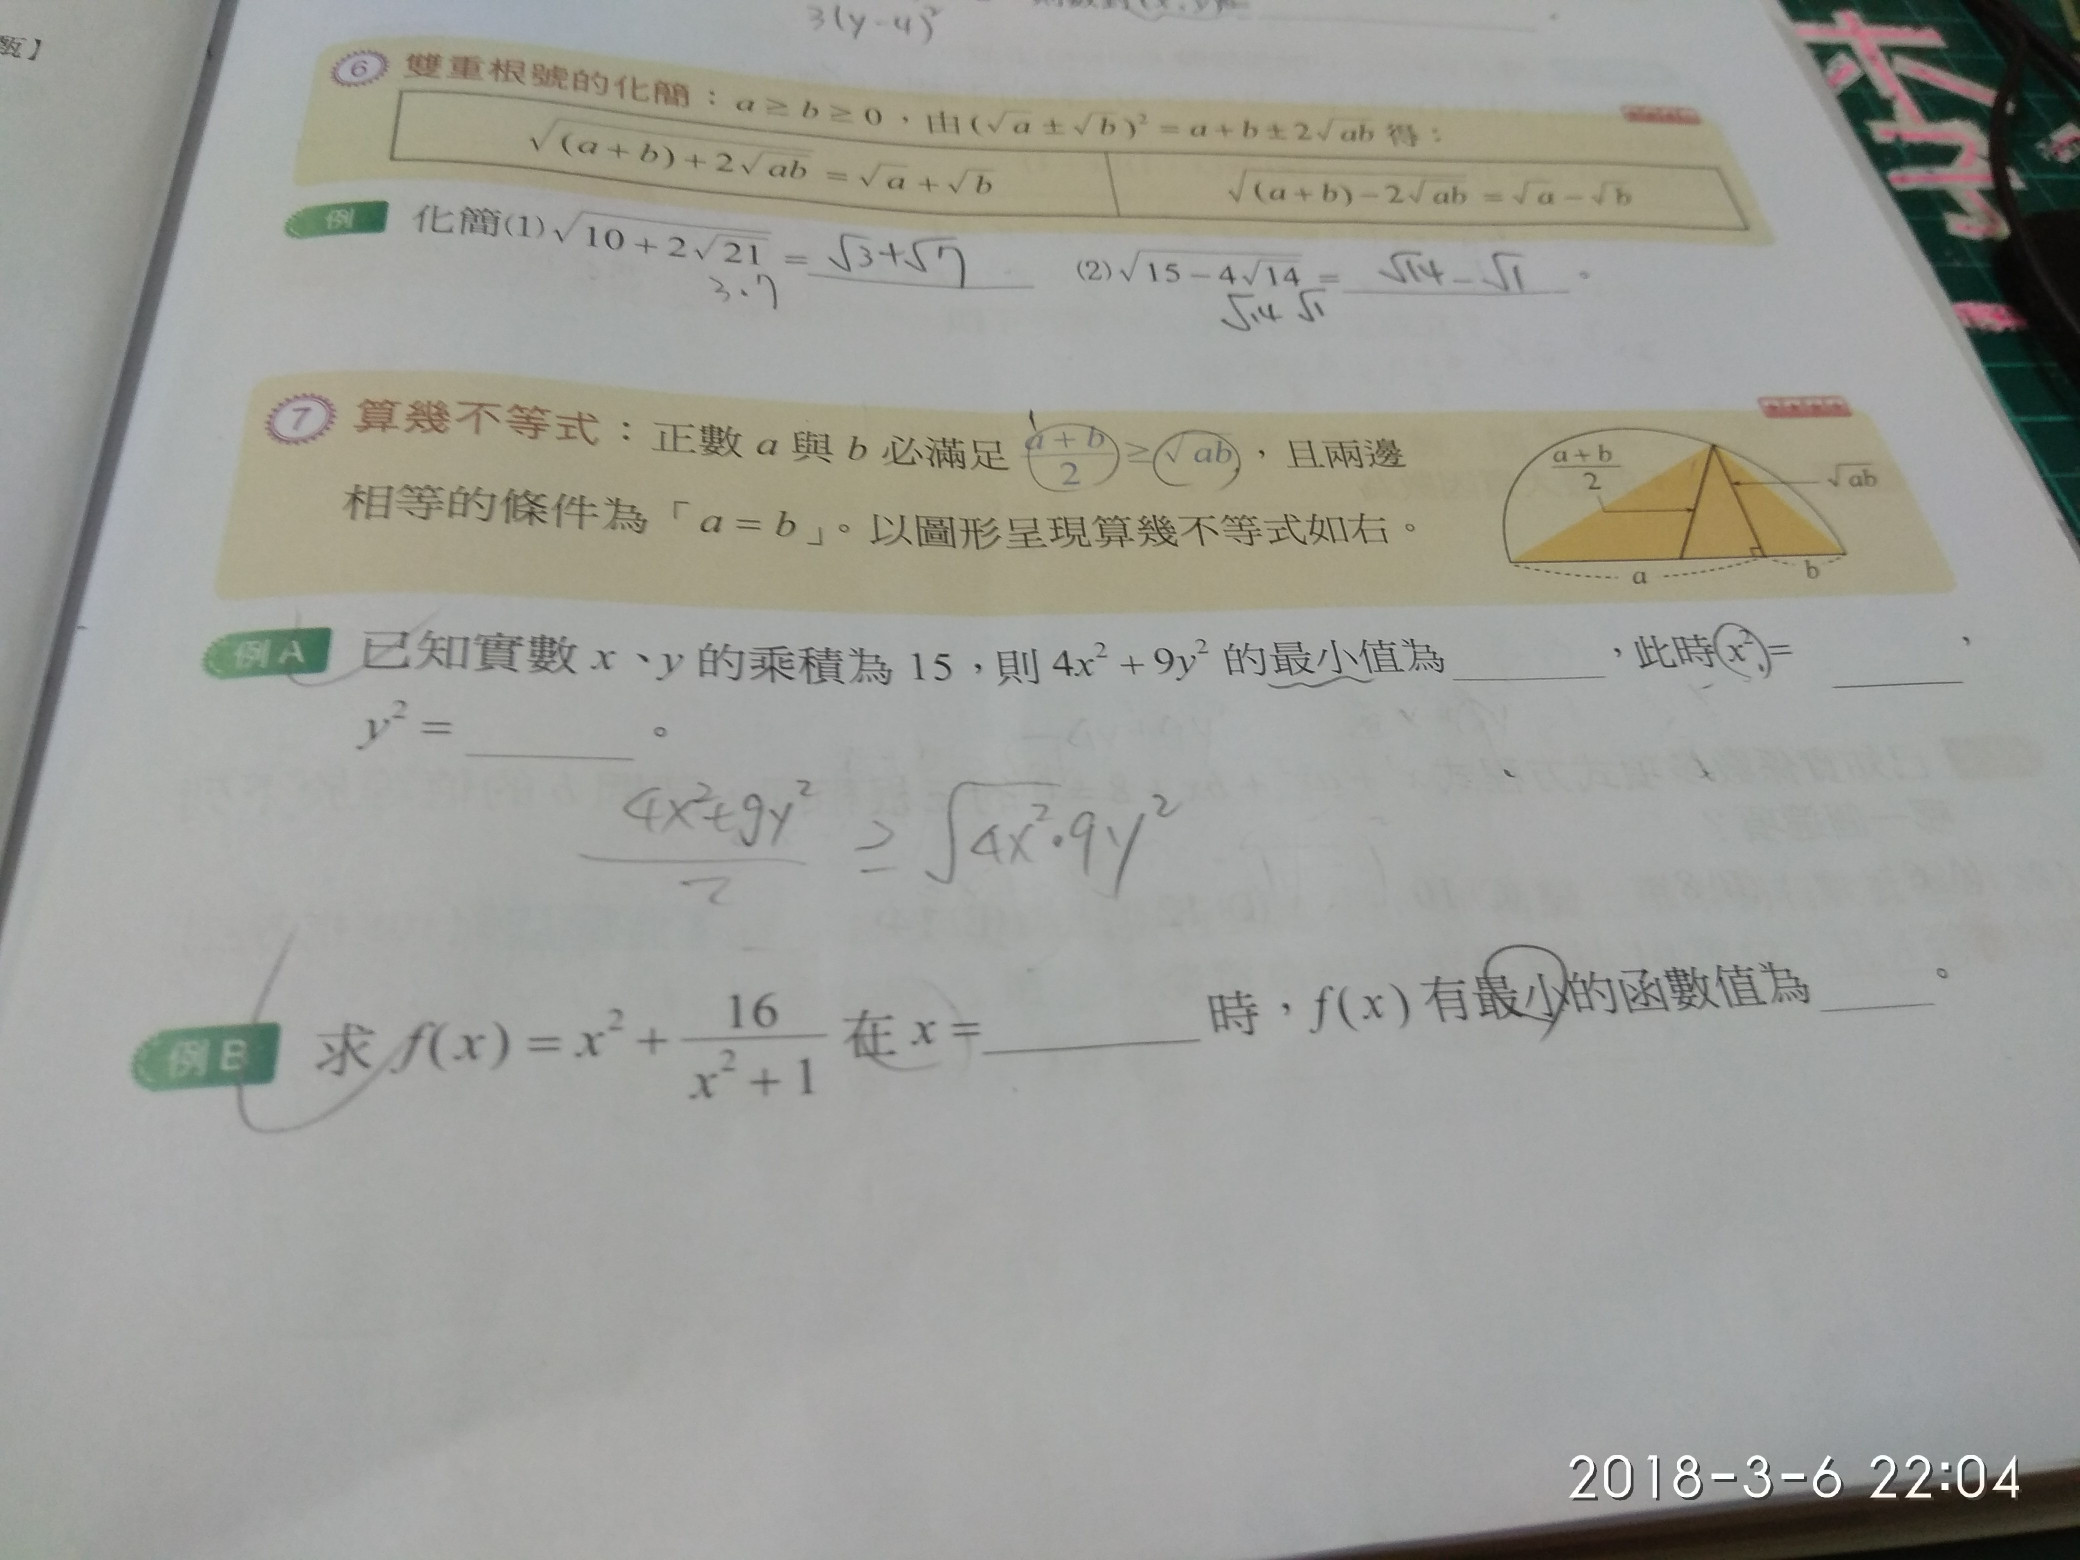 3(y-4)²
甄】
6 雙重根號的化簡：a ≥ b ≥ 0，由(√a ± √b)² = a + b ± 2√ab 得：
√(a + b) + 2√ab = √a + √b
√(a + b) − 2√ab = √a − √b
例 化簡(1)√10 + 2√21 = √3+√7 (2)√15 − 4√14 = √14 − √1 。
3·7 √14 √1
7 算幾不等式：正數 a 與 b 必滿足 a + b / 2 ≥ √ab，且兩邊
相等的條件為「a = b」。以圖形呈現算幾不等式如右。
a + b / 2
√ab
a b
例A 已知實數 x、y 的乘積為 15，則 4x² + 9y² 的最小值為 ，此時 x² = ，
y² = 。
4x²+9y² / 2 ≥ √4x²·9y²
例B 求 f(x) = x² + 16 / x² + 1 在 x = 時，f(x) 有最小的函數值為 。
2018-3-6 22:04